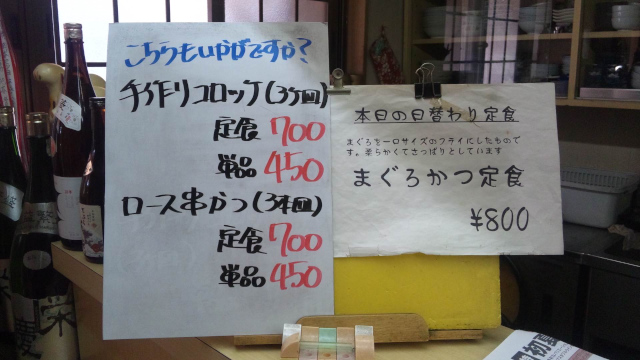 こちらもいかがですか?
手作りコロッケ(3ヶ回)
定食 700
単品 450
ロース串かつ(3本回)
定食 700
単品 450
本日の日替わり定食
まぐろを一口サイズのフライにしたもので
す。柔らかくてさっぱりとしています
まぐろかつ定食
¥800